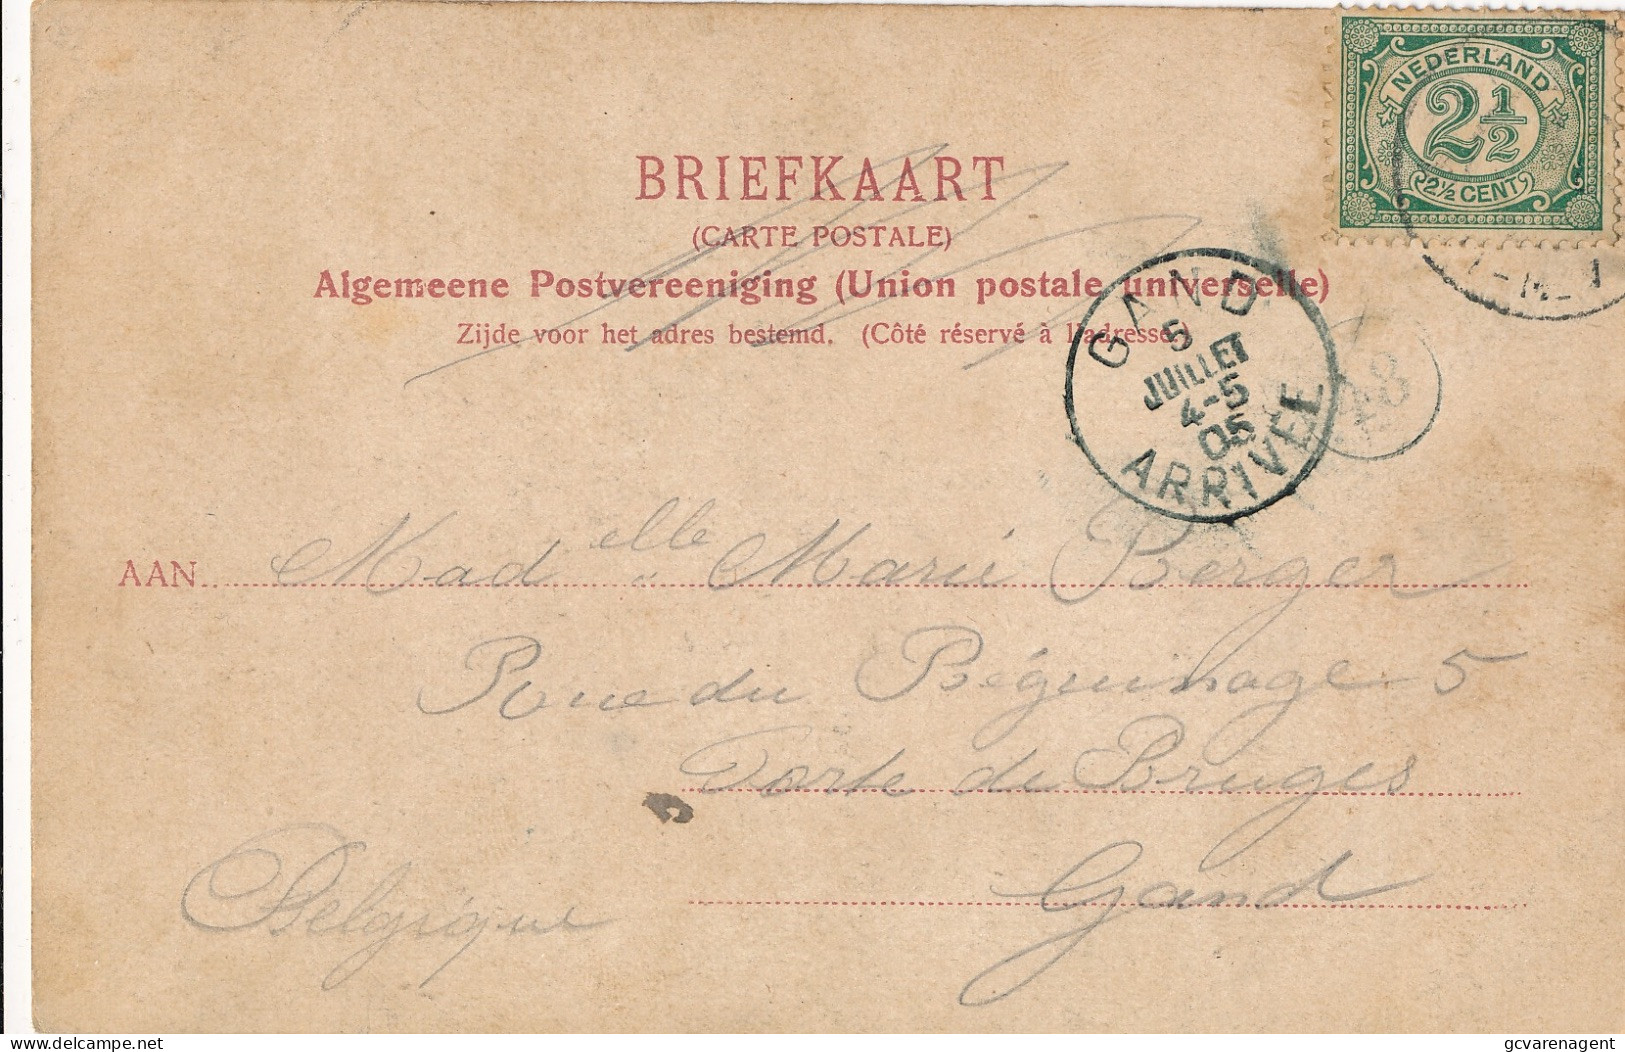 NEDERLAND
2 1/2
2½ CENT
BRIEFKAART
(CARTE POSTALE)
Algemeene Postvereeniging (Union postale universelle)
Zijde voor het adres bestemd. (Côté réservé à l'adresse.)
GAND
5
JUILLET
4-5
05
ARRIVEE
48
AAN Madelle Marie Berger
Rue du Béguinage 5
Porte de Bruges
Gand
Belgique
delcampe.net
gcvarenagent